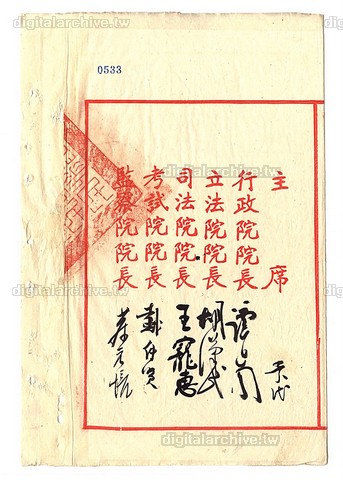 digitalarchive.tw
0533
主席
行政院院長 譚延闓
立法院院長 胡漢民
司法院院長 王寵惠
考試院院長 戴傳賢
監察院院長 蔡元培
digitalarchive.tw
digitalarchive.tw
digitalarchive.tw
digitalarchive.tw